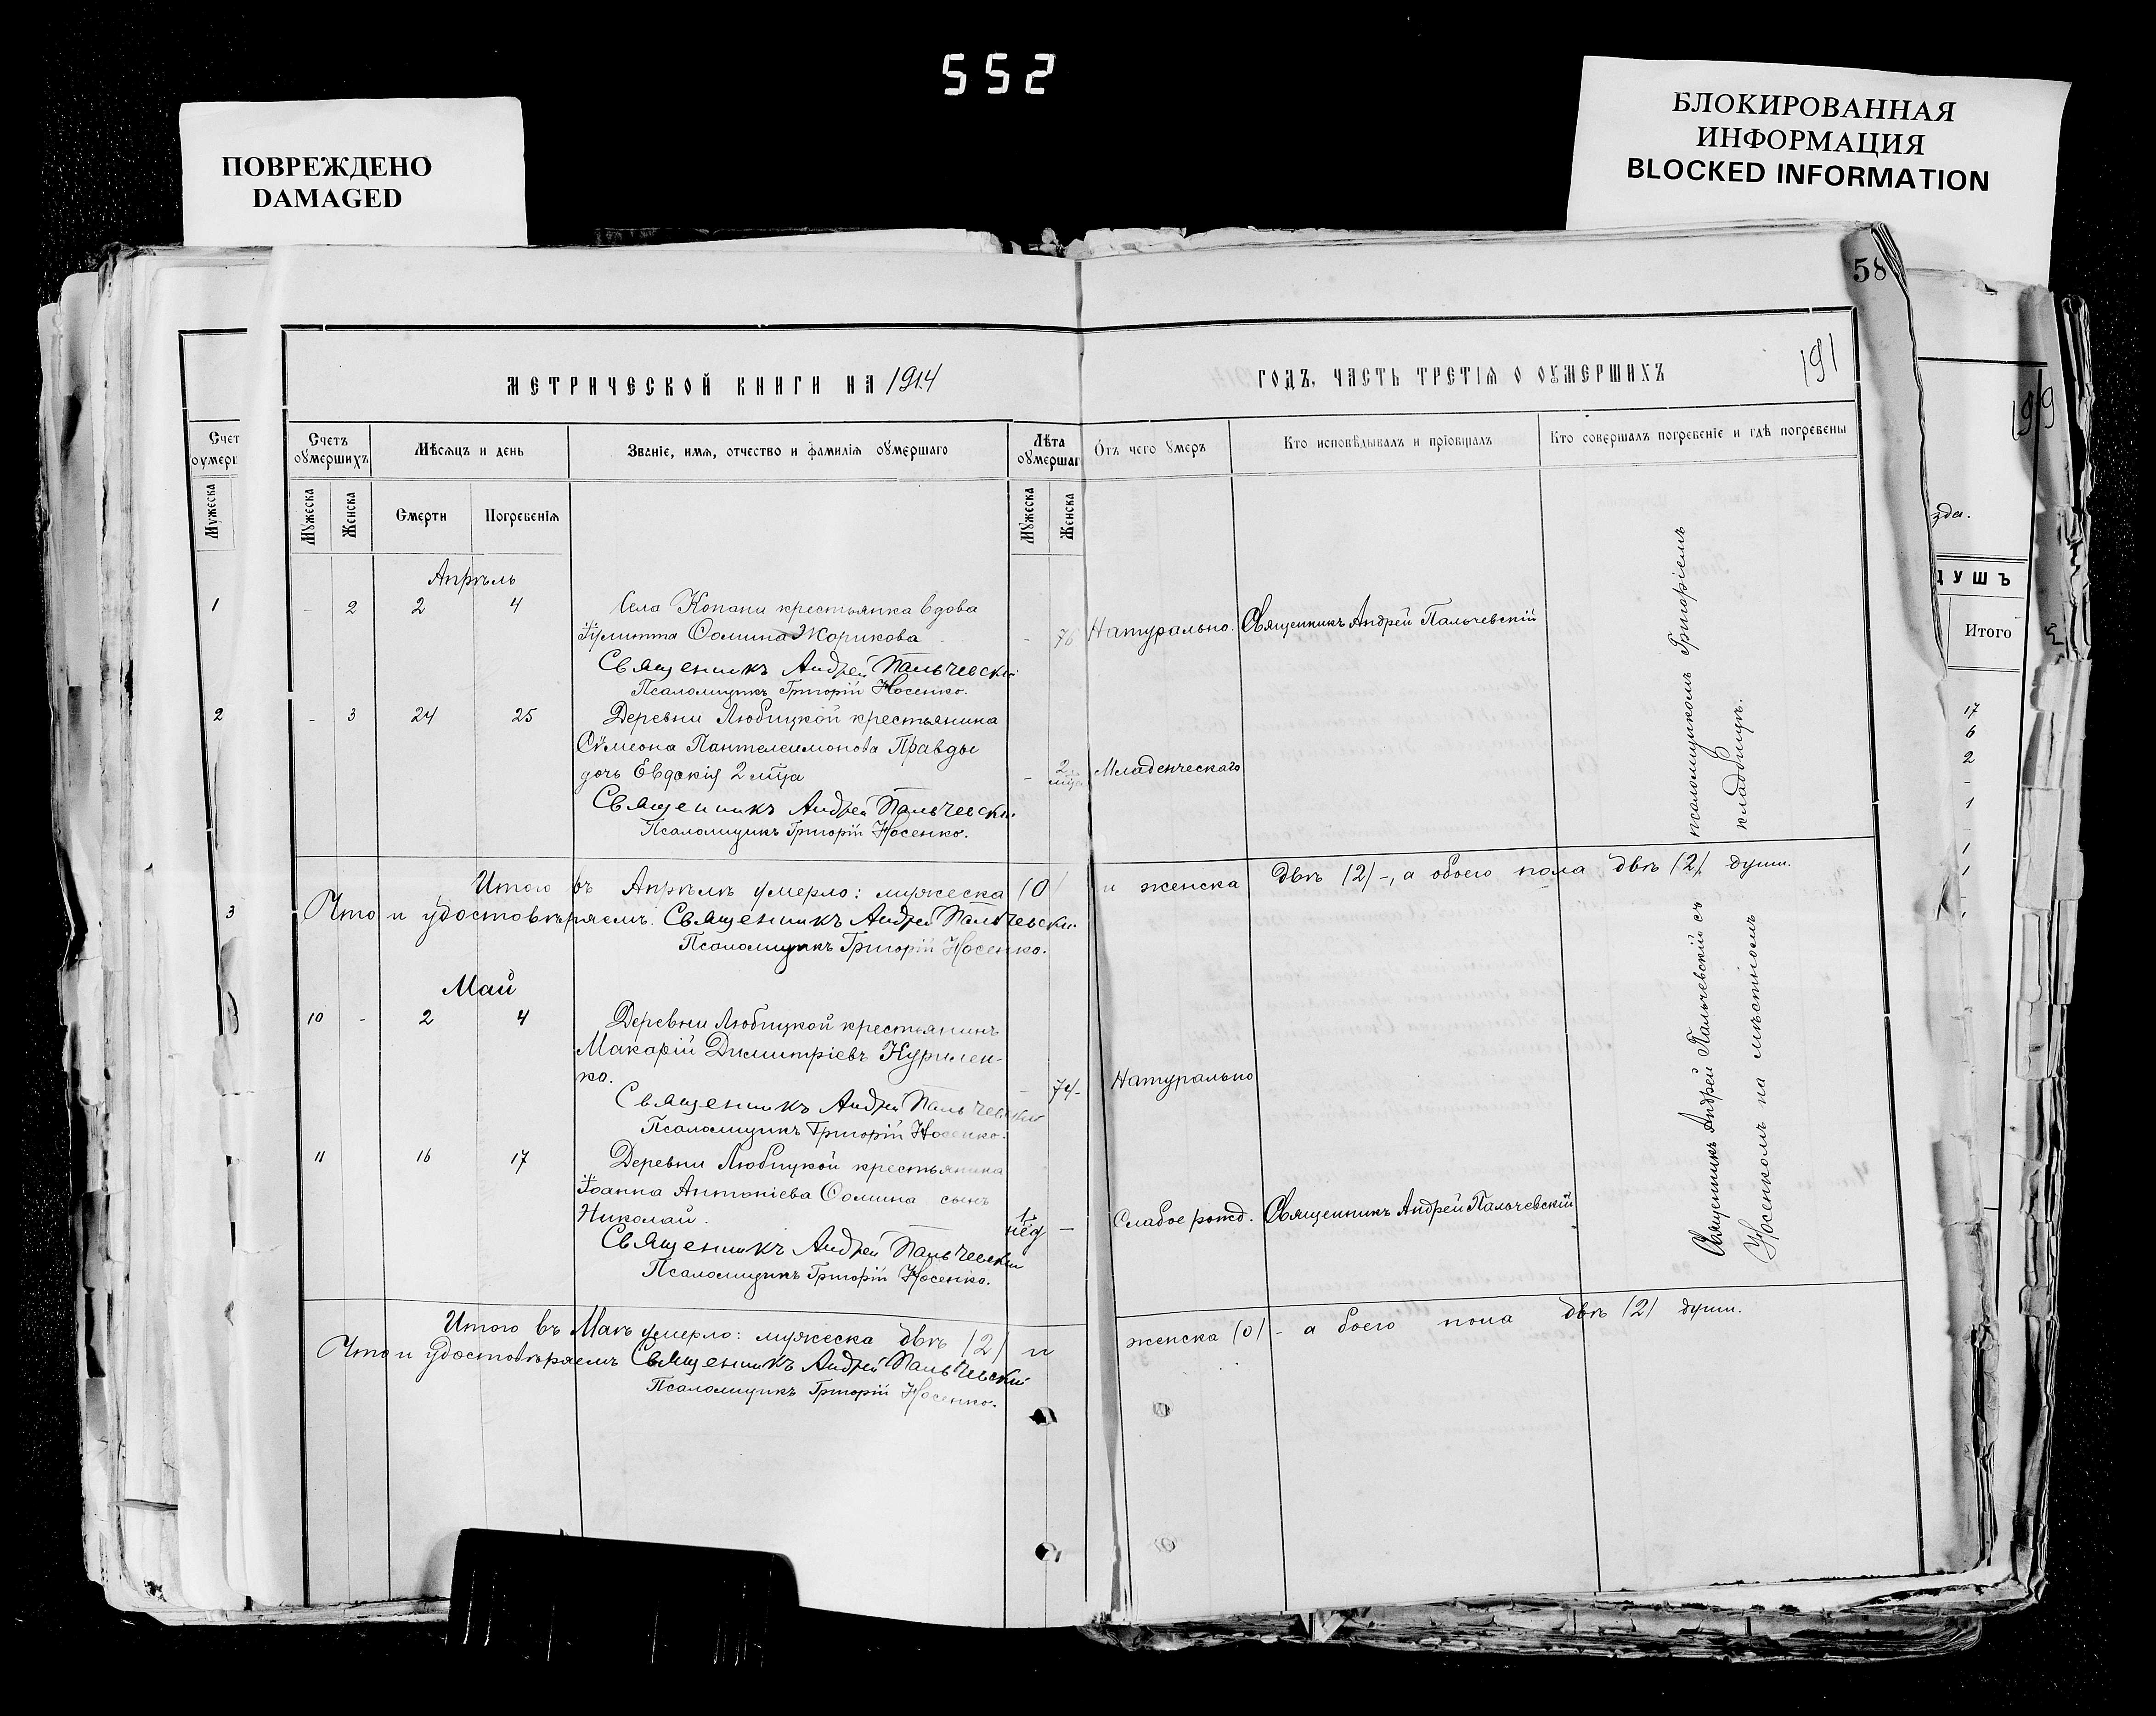 552
ПОВРЕЖДЕНО
DAMAGED
БЛОКИРОВАННАЯ
ИНФОРМАЦИЯ
BLOCKED INFORMATION
58
191
199
МЕТРИЧЕСКОЙ КНИГИ НА 1914
ГОДЪ, ЧАСТЬ ТРЕТІЯ О ОУМЕРШИХЪ
Счетъ оумершихъ
Мѣсяцъ и день
Званіе, имя, отчество и фамилія оумершаго
Лѣта оумершаг
Отъ чего умеръ
Кто исповѣдывалъ и пріобщалъ
Кто совершалъ погребеніе и гдѣ погребены
Мужеска
Женска
Смерти
Погребенія
Мужеска
Женска
Апрѣль
- 2 2 4 Села Копани крестьянка вдова
Іулитта Сомина Жорикова - 76 Натурально. Священникъ Андрей Пальчевскій
Священникъ Андрей Пальчевскій
Псаломщикъ Григорій Носенко.
- 3 24 25 Деревни Любицкой крестьянина
Сѵмеона Пантелеимонова Правды
дочь Евдокія 2 мца - 2 мца Младенческаго
Священникъ Андрей Пальчевскій
Псаломщикъ Григорій Носенко.
Итого въ Апрѣлѣ умерло: мужеска /0/ и женска двѣ /2/-, а обоего пола двѣ /2/ души.
Что и удостовѣряемъ. Священникъ Андрей Пальчевскій
Псаломщикъ Григорій Носенко.
Май
10 - 2 4 Деревни Любицкой крестьянинъ
Макарій Димитріевъ Курилен-
ко. - 74- Натурально
Священникъ Андрей Пальчевскій
Псаломщикъ Григорій Носенко.
11 16 17 Деревни Любицкой крестьянина
Іоанна Антоніева Сомина сынъ
Николай. 1 нед - Слабое рожд. Священникъ Андрей Пальчевскій
Священникъ Андрей Пальчевскій
Псаломщикъ Григорій Носенко.
Итого въ Маѣ умерло: мужеска двѣ /2/ и женска /0/ - а боего пола двѣ /2/ души.
Что и удостовѣряемъ Священникъ Андрей Пальчевскій
Псаломщикъ Григорій Носенко.
Священникъ Андрей Пальчевскій съ псаломщикомъ Григоріемъ
Носенкомъ на мѣстномъ кладбищѣ.
Счет
оумерш
Мужеска
1
2
3
зда.
ДУШЪ
Итого
17
6
2
-
1
-
1
1
-
1